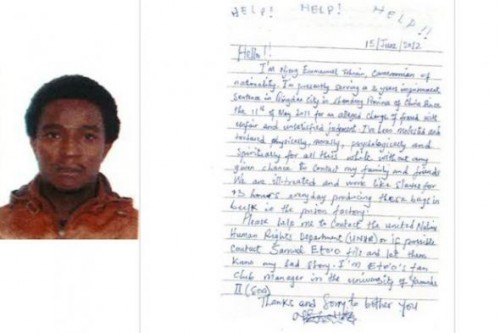 HELP! HELP! HELP!!
15/June/2012
Hello!!
I'm Njong Emmanuel, Cameroonian of
nationality. I'm presently serving a 3 years imprisonment
sentence in Qingdao city in Shandong Province of China since
the 11th of May 2011 for an alleged charge of fraud with
unfair and unsatisfied judgment. I've been molested and
tortured physically, morally, psychologically and
spiritually for all these while without any
given chance to contact my family and friends
We are ill-treated and work like slaves for
13 hours everyday producing these bags in
bulk in the prison factory.
Please help me to contact the United Nations
Human Rights Department (UNHR) or if possible
contact Samuel Eto'o fils and let them
know my sad story. I'm Eto'o's fan
Club manager in the university of Yaounde
II (SOA)
Thanks and Sorry to bother you